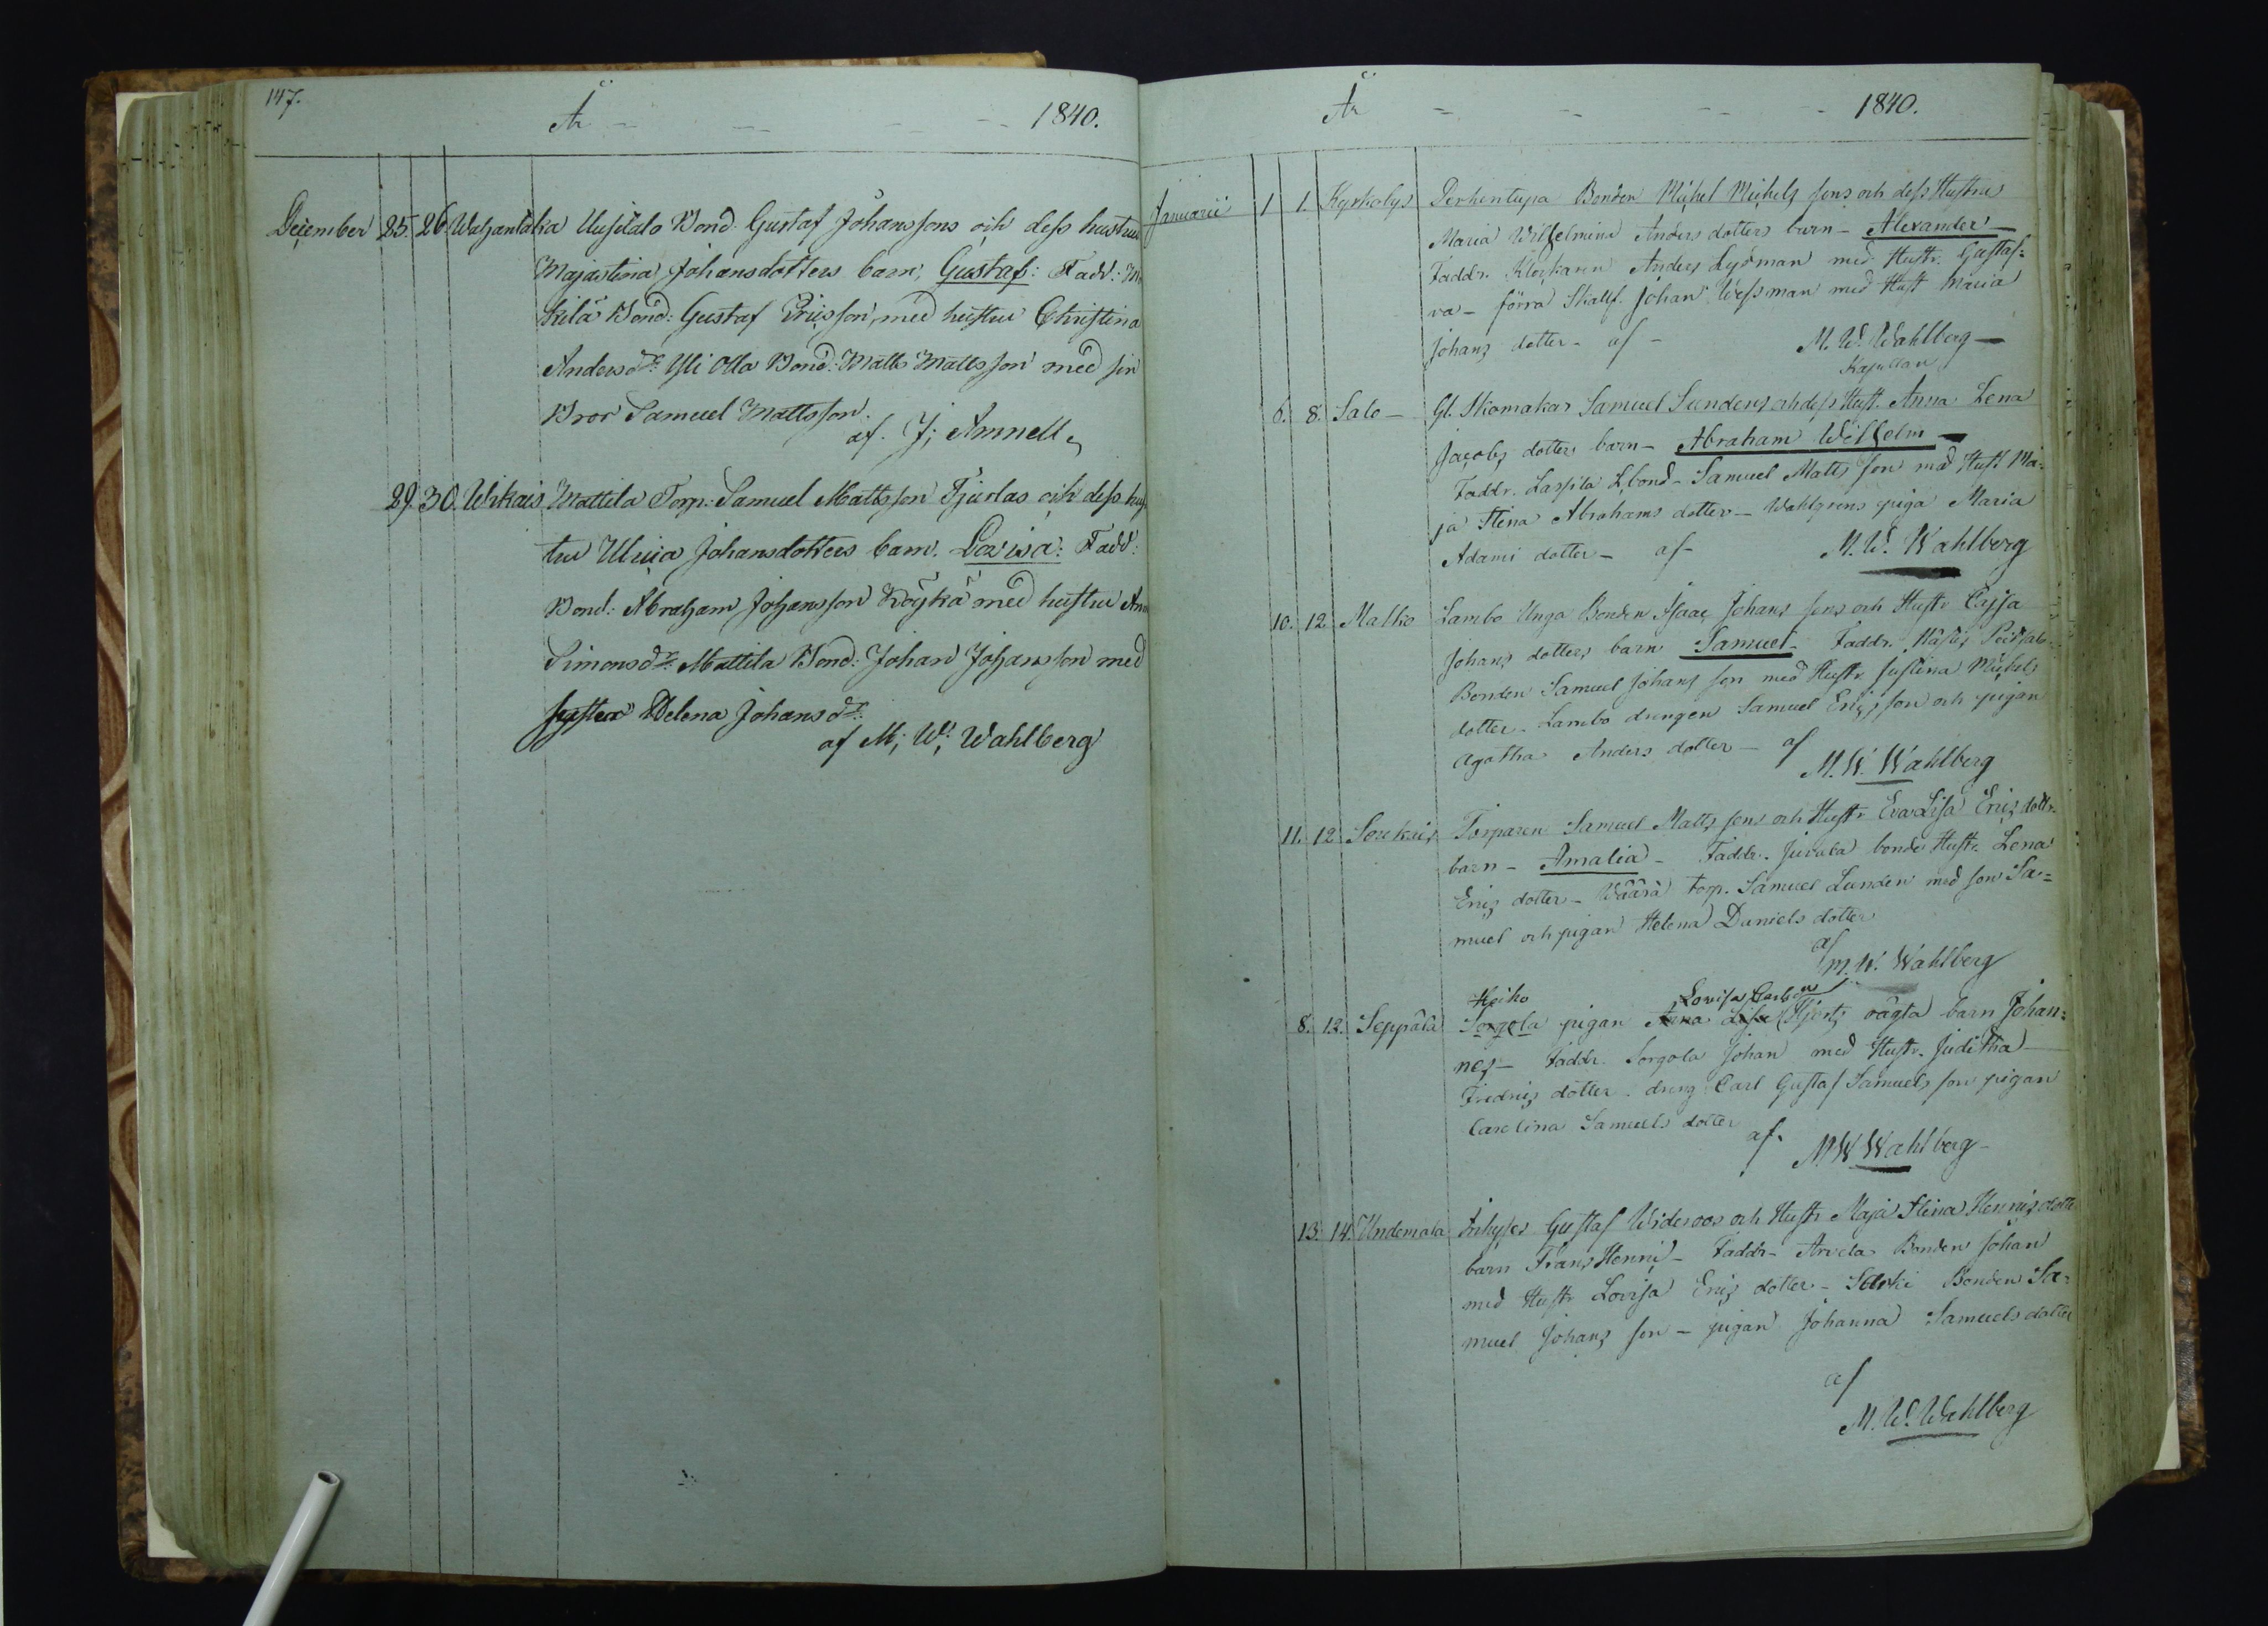 147.
År - - - - 1840.
December 25. 26. Wahantaka Uusitalo Bond: Gustaf Johanssons och dess hustru
Majastina Johansdotters barn, Gustaf: Fadd:
kilä Bond: Gustaf Ericsson, med hustru Christina
Andersdr: Yli Olla Bond: Matts Mattsson med sin
Bror Samuel Mattsson.
af. J; Amnell,
29. 30. Wirkais Mattila Torp: Samuel Mattsson Tjurlas och dess hus
tru Ulrica Johansdotters barn, Lovisa: Fadd:
Bond: Abraham Johansson Köykä med hustru Ann
Simonsdr: Mattila Bond: Johan Johansson med
syster Helena Johansdr:
af M; W; Wahlberg
År - - - - 1840.
Januarii 1 1. Kyrkobys Perkentupa Bonden Michel Michels sons och dess Hustru
Maria Wilhelmina Anders dotters barn - Alexander -
Faddr. Klockaren Anders Lydman med Hustr. Gustaf=
va - förra Skallf. Johan Wessman med Hust Maria
Johans dotter - af - M. W. Wahlberg -
Kapellan
6. 8. Salo - Gl. Skomakar Samuel Sundens och dess Hust. Anna Lena
Jacobs dotters barn - Abraham Wilhelm -
Faddr. Lassila Lbond - Samuel Matts son med Hust Ma=
ja Stina Abrahams dotter - Wahlgrens piga Maria
Adami dotter - af - M. W. Wahlberg
10. 12 Malko Lambo Unga Bonden Isaac Johans sons och Hustr Cajsa
Johans dotters barn Samuel - Faddr.
Bonden Samuel Johans son med Hustr. Justina Michels
dotter - Lambo drengen Samuel Erics son och pigan
Agatha Anders dotter - af
M. W. Wahlberg
11. 12 Soukais Torparen Samuel Matts sons och Hustr Eva Lisa Erics dottr.
barn - Amalia - Faddr. Juvala bonde Hustr. Lena
Erics dotter - Wäärä torp. Samuel Lunden med son Sa=
muel och pigan Helena Daniels dotter
af
M. W. Wahlberg
Heiko Lovisa Carls
8. 12. Seppälä Sorgola pigan Anna Lisa Hjorts oägta barn Johan=
nes - Faddr. Sorgola Johan med Hustr. Juditha
Fredrics dotter - dreng Carl Gustaf Samuels son pigan
Carolina Samuels dotter
af. M W Wahlberg -
13. 14. Undemala Inhyses Gustaf Wideroos och Hustr Maja Stina Henrics dotter
barn Frans Henric - Faddr - Arvela Bonden Johan
med Hustr Lovisa Erics dotter - Sarki Bonden Sa=
muel Johans son - pigan Johanna Samuels dotter
af
M. W. Wahlberg